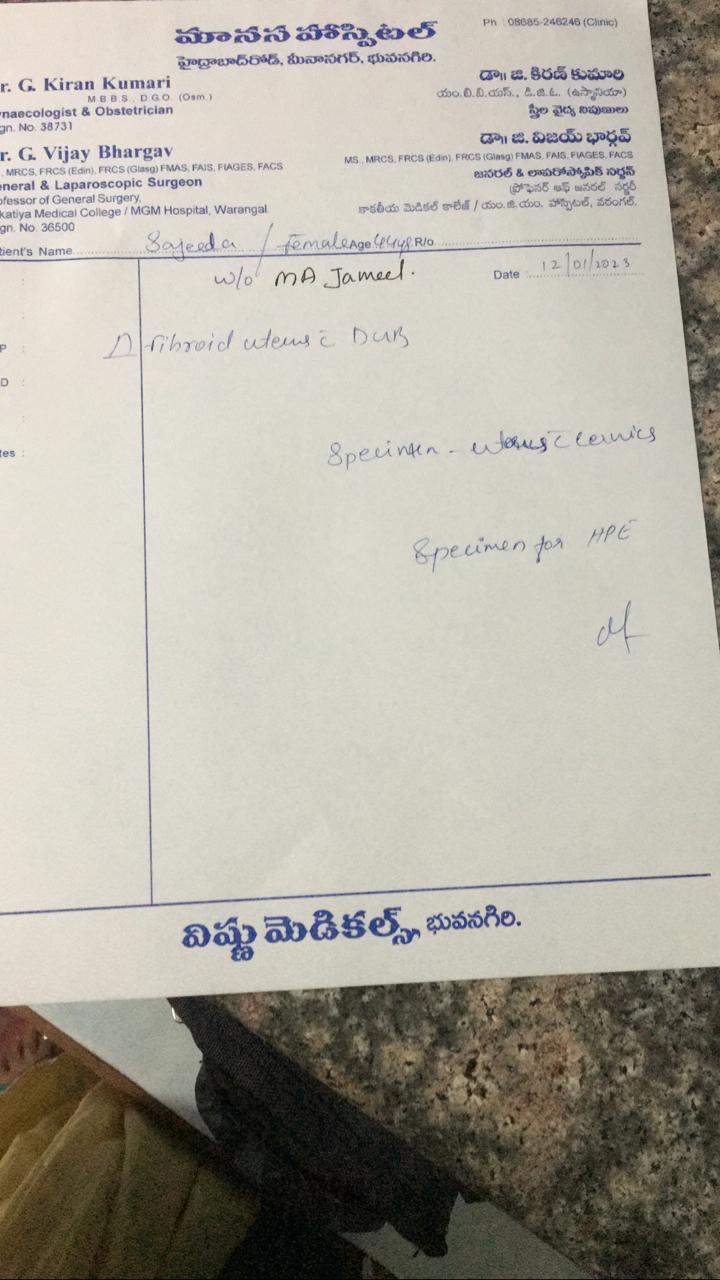 మానస హాస్పిటల్
Ph : 08685-246246 (Clinic)
హైద్రాబాద్‌రోడ్, మీనానగర్, భువనగిరి.
r. G. Kiran Kumari
M.B.B.S., D.G.O. (Osm.)
ynaecologist & Obstetrician
gn. No. 38731
డా॥ జి. కిరణ్ కుమారి
యం.బి.బి.యస్., డి.జి.ఓ. (ఉస్మానియా)
స్త్రీల వైద్య నిపుణులు
r. G. Vijay Bhargav
, MRCS, FRCS (Edin), FRCS (Glasg) FMAS, FAIS, FIAGES, FACS
eneral & Laparoscopic Surgeon
ofessor of General Surgery,
katiya Medical College / MGM Hospital, Warangal.
gn. No. 36500
డా॥ జి. విజయ్ భార్గవ్
MS., MRCS, FRCS (Edin), FRCS (Glasg) FMAS, FAIS, FIAGES, FACS
జనరల్ & లాపరోస్కోపిక్ సర్జన్
(ప్రొఫెసర్ ఆఫ్ జనరల్ సర్జరీ
కాకతీయ మెడికల్ కాలేజ్ / యం.జి.యం. హాస్పిటల్, వరంగల్.
tient's Name Sajeeda / female Age 44yr R/o
w/o MA Jameel.
Date : 12/01/2023
P :
D :
tes :
fibroid uterus c̄ DUB
Specimen - uterus c̄ cervics
Specimen for HPE
విష్ణు మెడికల్స్, భువనగిరి.